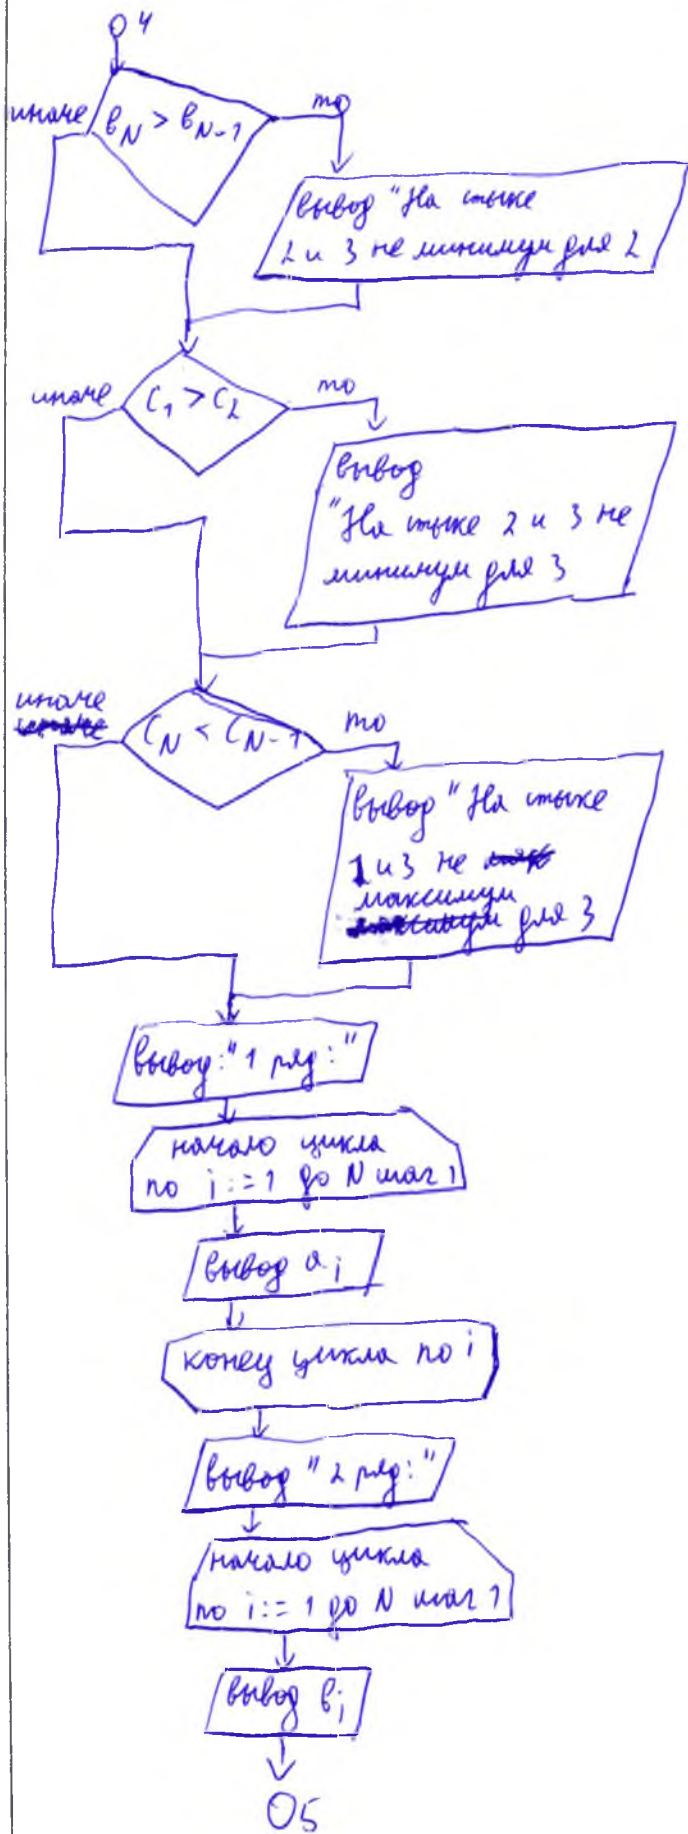 4
иначе
то
вN > вN-1
вывод "На стыке
2 и 3 не минимум для 2
иначе
то
C1 > C2
вывод
"На стыке 2 и 3 не
минимум для 3
иначе
то
CN < CN-1
вывод "На стыке
1 и 3 не
максимум
для 3
вывод: "1 ряд:"
начало цикла
по i:=1 до N шаг 1
вывод ai
конец цикла по i
вывод "2 ряд:"
начало цикла
по i:=1 до N шаг 1
вывод вi
5